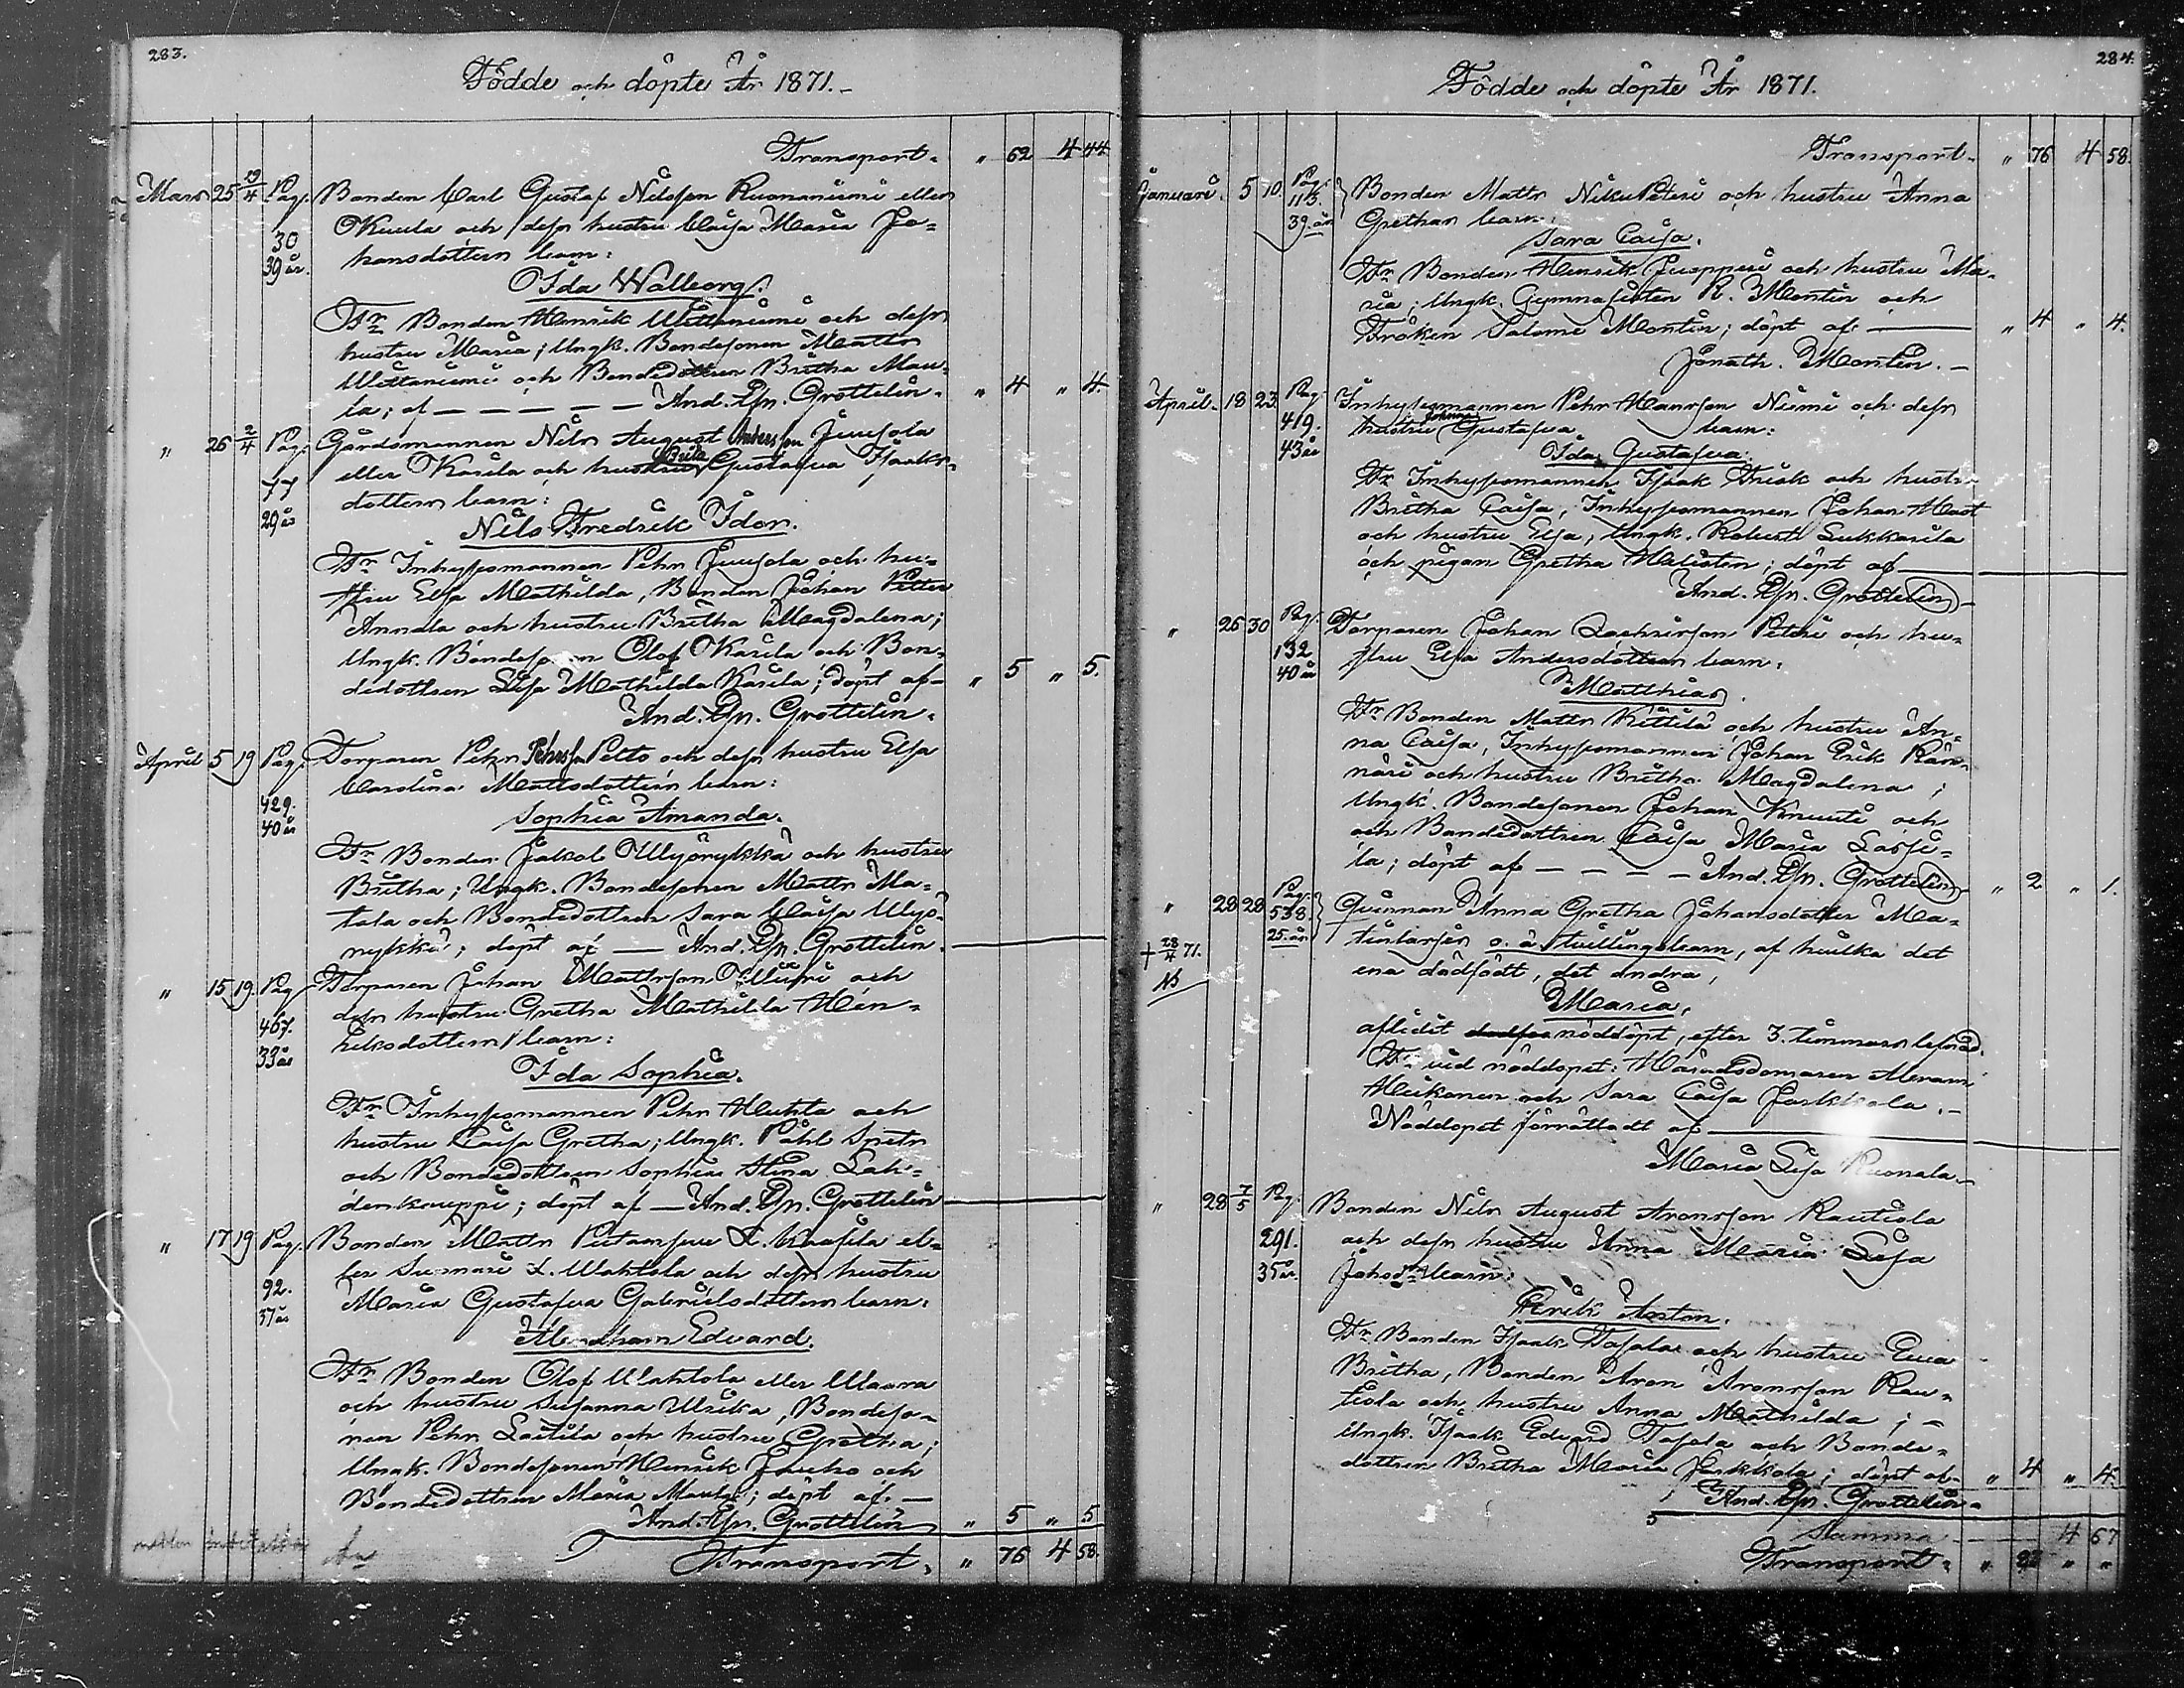 283.
Födde och döpte År 1871.
Transport. " 62 4 44
Mars 25 29/4 Pag. Bonden Carl Gustaf Nilsson Ruonaniemi eller
30 Kuula och dess hustru Caisa Maria Jo=
39 år. hansdotters barn:
Ida Walborg.
Fr Bonden Henrik Wittaniemi och dess
hustru Maria; Ungk. Bondesonen Matts
Wittaniemi och Bondedottren Britha Mau=
la; af — — — — — And. Joh. Grottelin. " 4 " 4.
" 26 2/4 Pag. Gårdsmannen Nils August Andersson Juusola
77 eller Karila och hustru Brita Gustafva Isaaks=
29 år dotters barn:
Nils Fredrik Idor.
Fr Inhysesmannen Pehr Juusola och hu=
stru Elsa Mathilda, Bonden Johan Petter
Annala och hustru Britha Magdalena;
Ungk. Bondesonen Olof Karila och Bon=
dedottren Lisa Mathilda Karila; döpt af — " 5 " 5.
And. Joh. Grottelin.
April 5 19 Pag. Torparen Pehr Pehrsson Pelto och dess hustru Elsa
429. Carolina Mattsdotters barn:
40 år Sophia Amanda.
Fr Bonden Jakob Ylipörykkä och hustru
Britha; Ungk. Bondesonen Matts Ma=
tala och Bondedottren Sara Caisa
döpt af — And. Joh. Grottelin.
" 15 19. Pag Torparen Johan Mattsson och
467. dess hustru Gretha Mathilda Hen=
33 år riksdotters barn:
Ida Sophia.
Fr Inhysesmannen Pehr Huhta och
hustru Caisa Gretha; Ungk. Påhl
och Bondedottren Sophia Stina Lah=
denkauppi; döpt af — And. Joh. Grottelin
" 17 19 Pag. Bonden Matts
92. och dess hustru
37 år Maria Gustafva Gabrielsdotters barn.
Abraham Edvard.
Fr Bonden Olof Wahtola eller Waara
och hustru Susanna Ulrika, Bondeso=
nen Pehr Laitila och hustru Gretha;
Ungk. Bondesonen Henrik Jaucho och
Bondedottren Maria Maula; döpt af. —
And. Joh. Grottelin " 5 " 5
Transport. " 76 4 58.
284.
Födde och döpte År 1871.
Transport. " 76 4 58.
Januari. 5 10. Pag. 113. Bonden Matts NikuPeteri och hustru Anna
39. år Grethas barn.
Sara Caisa.
Fr Bonden Henrik Juopperi och hustru Ma=
ria; Ungk. Gymnasisten R. Montin och
Fröken Salome Montin; döpt af. — " 4 " 4.
Jonath. Montin. —
April. 18 23. Pag. Inhysesmannen Pehr Hansson Niemi och dess
419. hustru Johanna Gustafva barn:
43 år Ida Gustafva.
Fr Inhysesmannen Isaak Frisk och hustru
Britha Caisa, Inhysesmannen Johan Mast
och hustru Elsa, Ungk. Robert Sukkarila
och pigan Gretha; döpt af —
And. Joh. Grottelin —
" 26 30 Pag. Torparen Johan Zachrisson Petäri och hu=
132 stru Elsa Andersdotters barn.
40 år Matthias.
Fr Bonden Matts Kittilä och hustru An=
na Caisa, Inhysesmannen Johan Erik Rän=
näri och hustru Britha Magdalena;
Ungk. Bondesonen Johan Knuuti och
och Bondedottren Caisa Maria Lassi=
la; döpt af — — — — And. Joh. Grottelin — " 2 " 1.
" 28 28 Pag. 538. Qvinnan Anna Gretha Johansdotter Ma=
25. år tinlassis o. ä. tvillingebarn, af hvilka det
† 28/4 71. ena dödfödt, det andra,
Maria,
aflidit nöddöpt, efter 3. timmars lefnad.
Fr vid nöddopet: Häradsdomaren Abram
Heikonen och Sara Caisa Jarkkola. —
Nöddopet förrättadt af —
Maria Lisa Ruonala. —
" 28 7/5 Pag. Bonden Nils August Aronsson Rautiola
291. och dess hustru Anna Maria Lisa
35 år. Johsdrs barn:
Erik Anton.
Fr Bonden Isaak Tossola och hustru Eva
Britha, Bonden Aron Aronsson Rau=
tiola och hustru Anna Mathilda; —
Ungk. Isaak Edvard Tossola och Bonde=
dottren Britha Maria Jarkkola; döpt af — " 4 " 4.
And. Joh. Grottelin —
Summa — 4 67
Transport. "